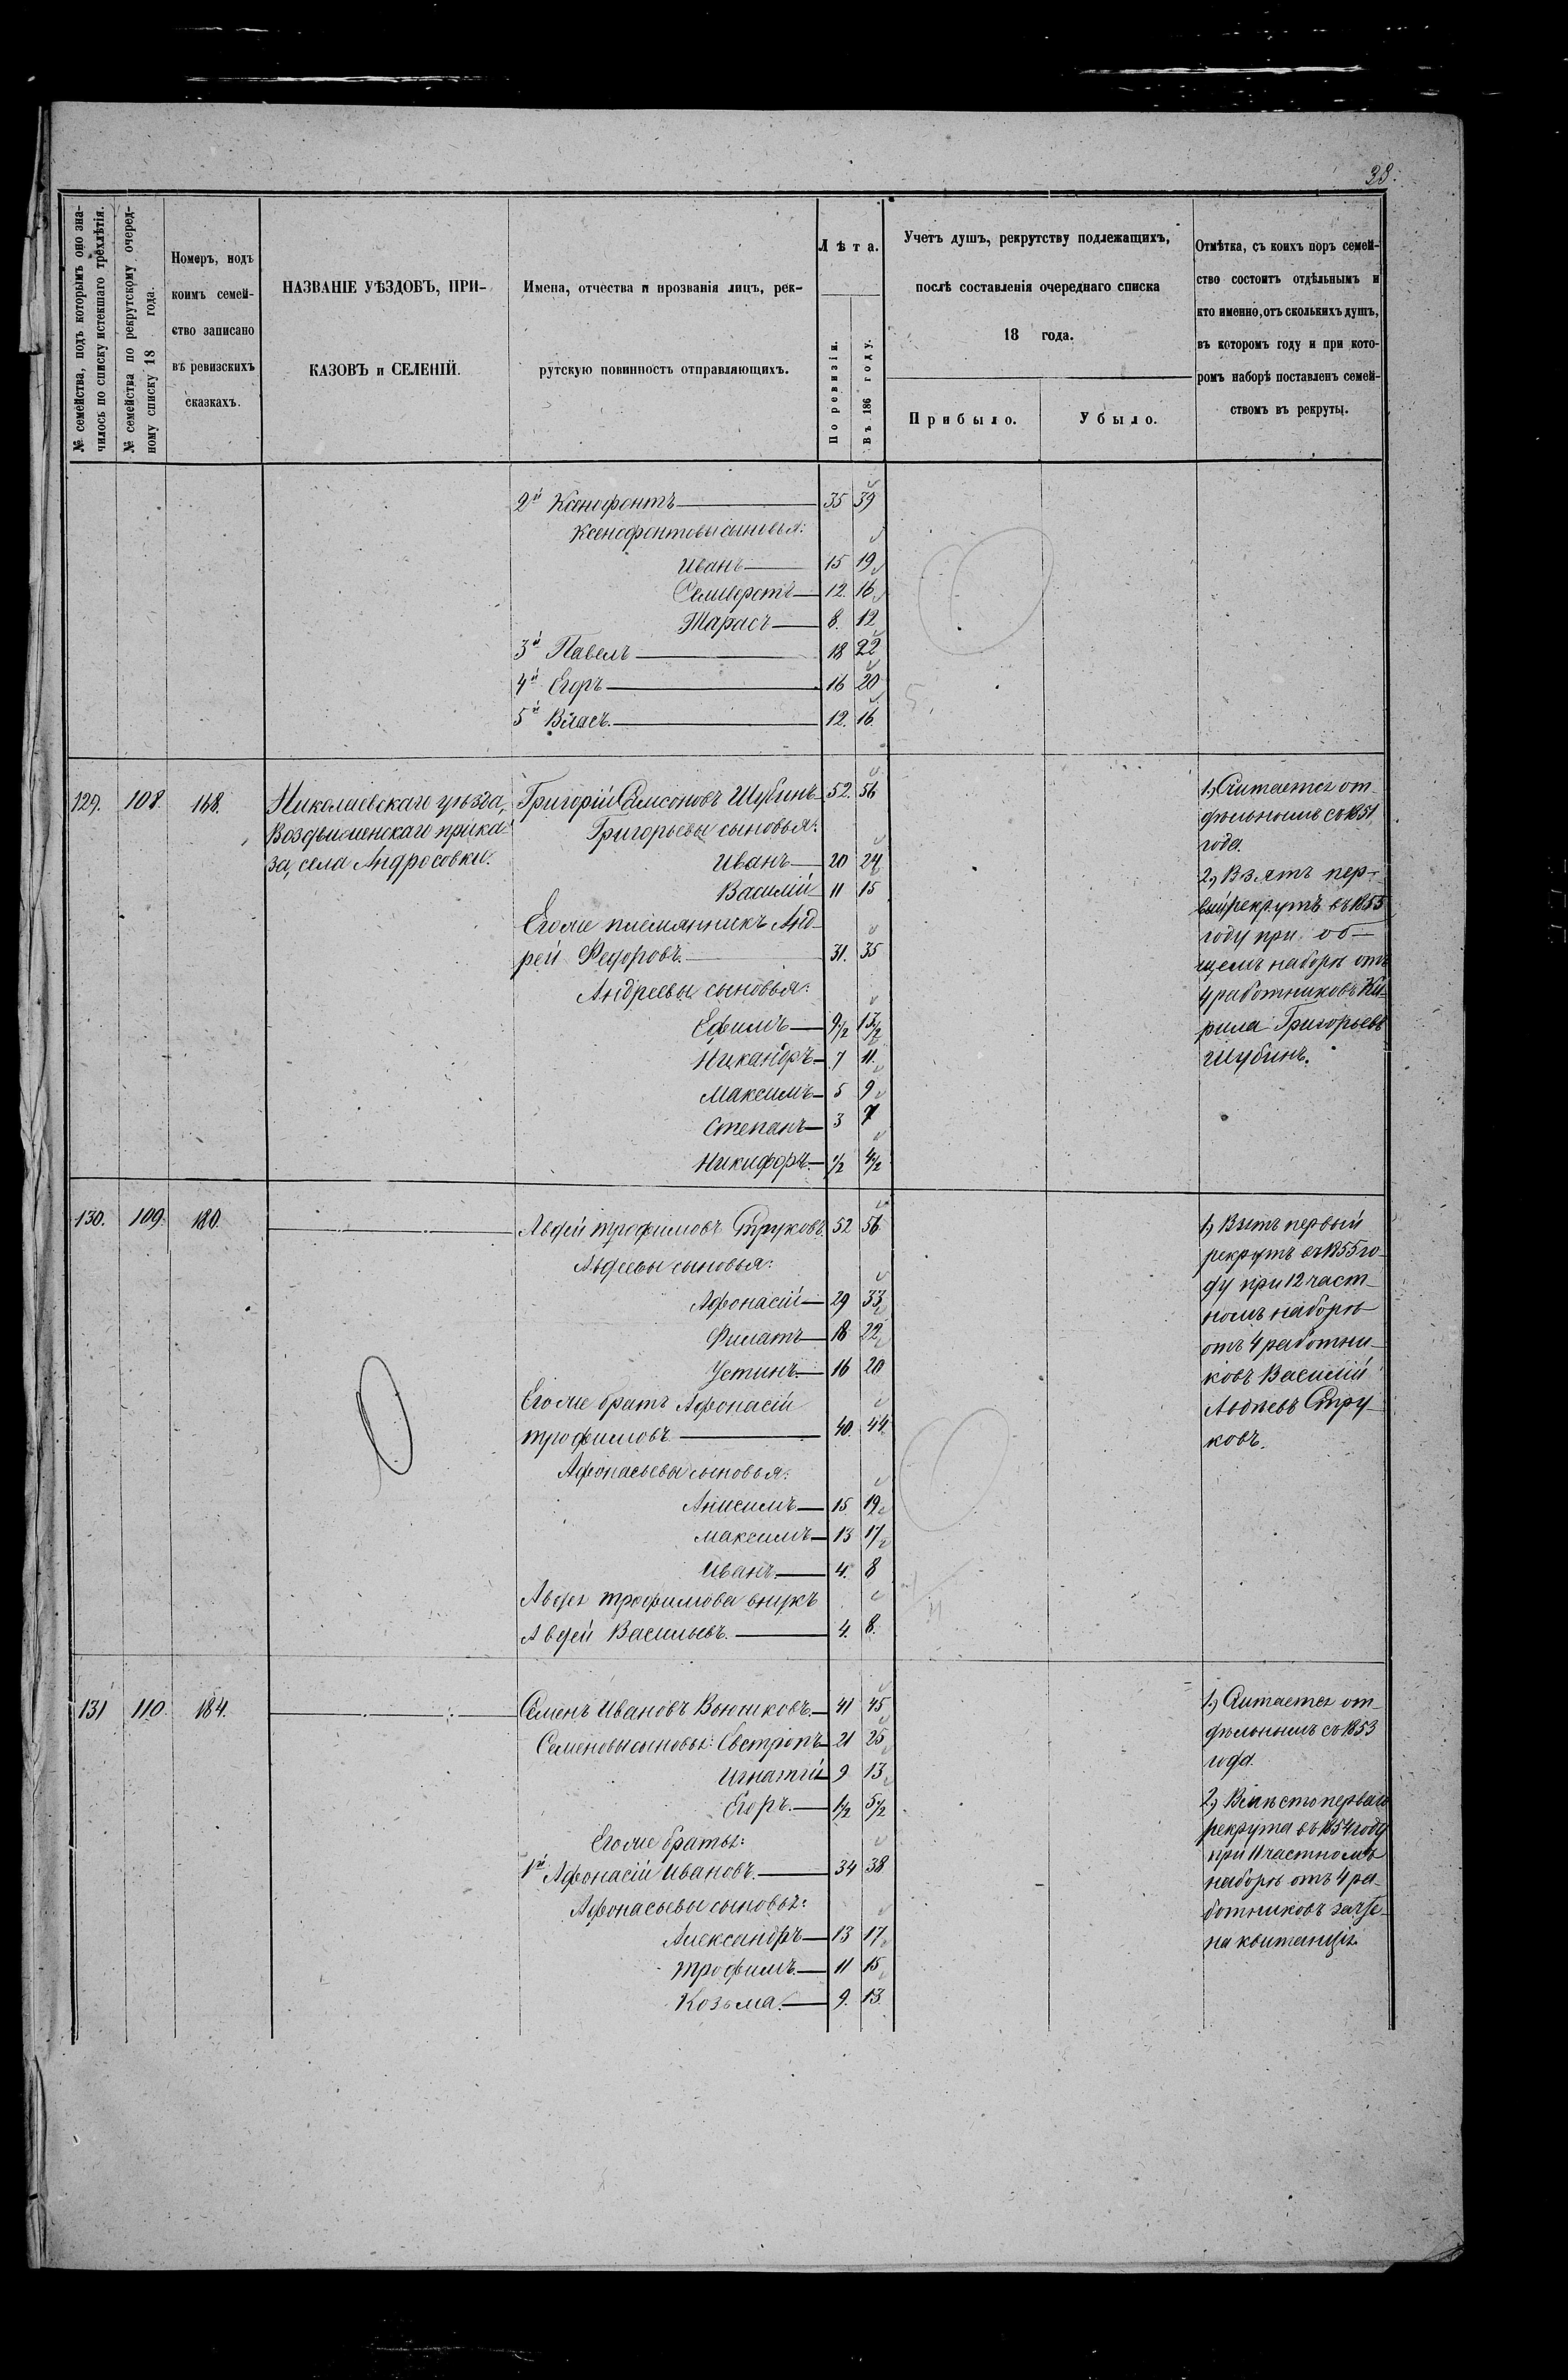 33.
№ семейства, подъ которымъ оно зна-
чилось по списку истекшаго трехлѣтія.
№ семейства по рекрутскому очеред-
ному списку 18 года.
Номеръ, подъ
коимъ семей-
ство записано
въ ревизскихъ
сказкахъ.
НАЗВАНІЕ УѢЗДОВЪ, ПРИ-
КАЗОВЪ и СЕЛЕНІЙ.
Имена, отчества и прозванія лицъ, рек-
рутскую повинность отправляющихъ.
Лѣта.
По ревизіи.
Въ 186 году.
Учетъ душъ, рекрутству подлежащихъ,
послѣ составленія очереднаго списка
18 года.
Прибыло.
Убыло.
Отмѣтка, съ коихъ поръ семей-
ство состоитъ отдѣльнымъ и
кто именно, отъ сколькихъ душъ,
въ которомъ году и при кото-
ромъ наборѣ поставленъ семей-
ствомъ въ рекруты.
2й Ксенофонтъ 35 39
Ксенофонтовы сыновья:
Иванъ 15 19
Селиверстъ 12. 16
Тарасъ 8. 12
3й Павелъ 18 22
4й Егоръ 16 20
5й Власъ. 12. 16.
129. 108. 168.
Николаевскаго уѣзда,
Воздвиженскаго прика-
за, села Андросовки.
Григорій Самсоновъ Шубинъ 52. 56
Григорьевы сыновья:
Иванъ 20 24
Василій 11 15
Его же племянникъ Анд-
рей Федоровъ. 31. 35
Андреевы сыновья:
Ефимъ 9/2 13/2
Никандръ 7 11.
Максимъ 5 9
Степанъ 3 7
Никифоръ. 1/2 4 1/2
1) Считается от-
дѣльнымъ съ 1851
года.
2) Взятъ пер-
вый рекрутъ въ 1855
году при об-
щемъ наборѣ отъ
4 работниковъ Ки-
рила Григорьевъ
Шубинъ.
130. 109. 180.
Авдей Трофимовъ Струковъ. 52 56
Авдеевы сыновья:
Афонасій 29 33
Филатъ 18 22
Устинъ. 16 20
Его же братъ Афонасій
Трофимовъ 40. 44.
Афонасьевы сыновья:
Анисимъ 15. 19
Максимъ 13 17
Иванъ. 4. 8
Авдея Трофимова внукъ
Авдей Васильевъ. 4. 8.
1) Взятъ первый
рекрутъ въ 1855 го-
ду при 12 част-
номъ наборѣ
отъ 4 работни-
ковъ Василій
Авдѣевъ Стру-
ковъ.
131 110. 184.
Семенъ Ивановъ Вьюшковъ. 41 45
Семеновы сыновья: Евстропъ 21 25
Игнатій 9 13
Егоръ. 1 1/2 5 1/2
Его же братья:
1й Афонасій Ивановъ. 34 38
Афонасьевы сыновья:
Александръ 13 17
Трофимъ. 11 15
Козьма. 9. 13.
1) Считается от-
дѣльнымъ съ 1853
года.
2) Вмѣсто перваго
рекрута въ 1854 году
при 11 частномъ
наборѣ отъ 4 ра-
ботниковъ зачте-
на квитанція.